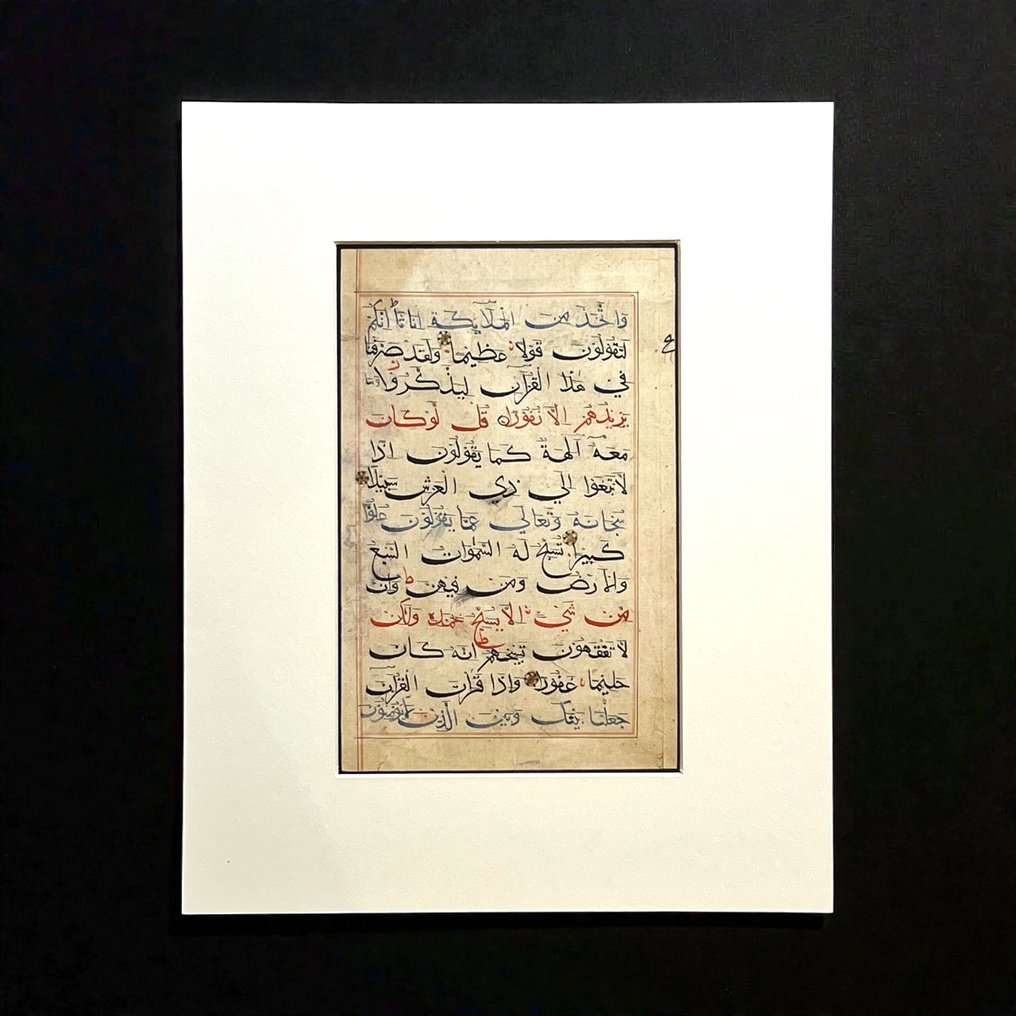 واتخذ من الملايكة اناثا انكم
لتقولون قولا عظيما ولقد صرفنا
في هذا القرآن ليذكروا وما
يزيدهم الا نفورا قل لو كان
معه آلهة كما يقولون اذا
لابتغوا الي ذي العرش سبيلا
سبحانه وتعالي عما يقولون علوا
كبيرا تسبح له السموات السبع
والارض ومن فيهن وان
من شي الا يسبح بحمده ولكن
لا تفقهون تسبيحهم انه كان
حليما غفورا واذا قرات القرآن
جعلنا بينك وبين الذين لا يؤمنون
ع